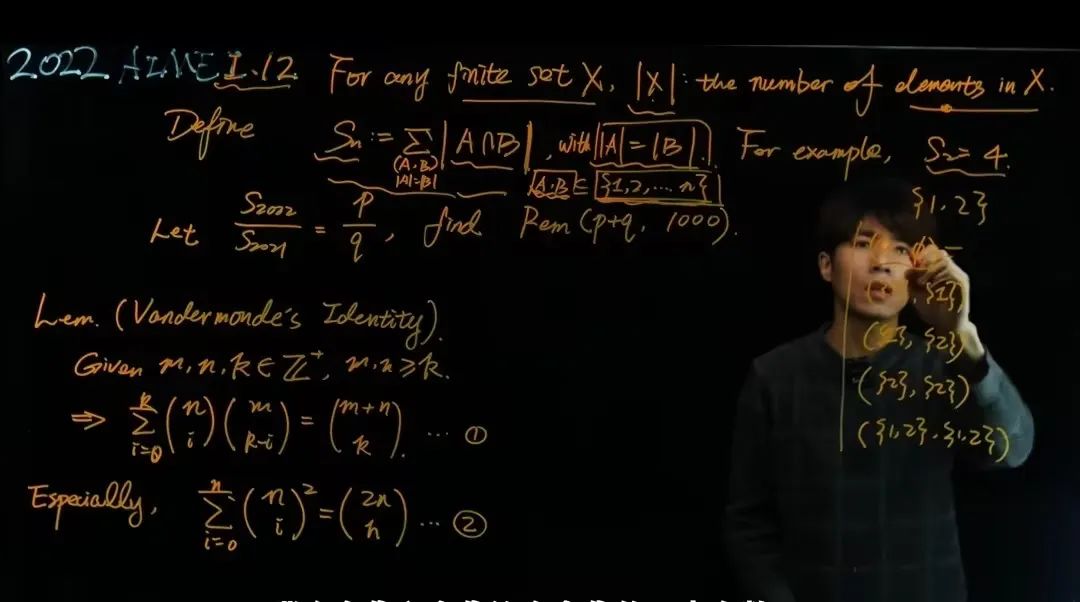 2022 AIME I.12 For any finite set X, |X|: the number of elements in X.
Define Sₙ := ∑ |A∩B|, with |A|=|B|. For example, S₂=4.
(A,B)
|A|=|B|
A,B ∈ {1,2,...n}
{1,2}
Let S₂₀₂₂/S₂₀₂₁ = p/q, find Rem(p+q, 1000).
{1})
({1}, {2})
({2}, {2})
({1,2}, {1,2})
Lem. (Vandermonde's Identity).
Given m,n,k ∈ ℤ⁺, m,n ≥ k.
⇒ ∑_{i=0}^{k} (n i)(m k-i) = (m+n k). ... ①
Especially, ∑_{i=0}^{n} (n i)² = (2n n) ... ②